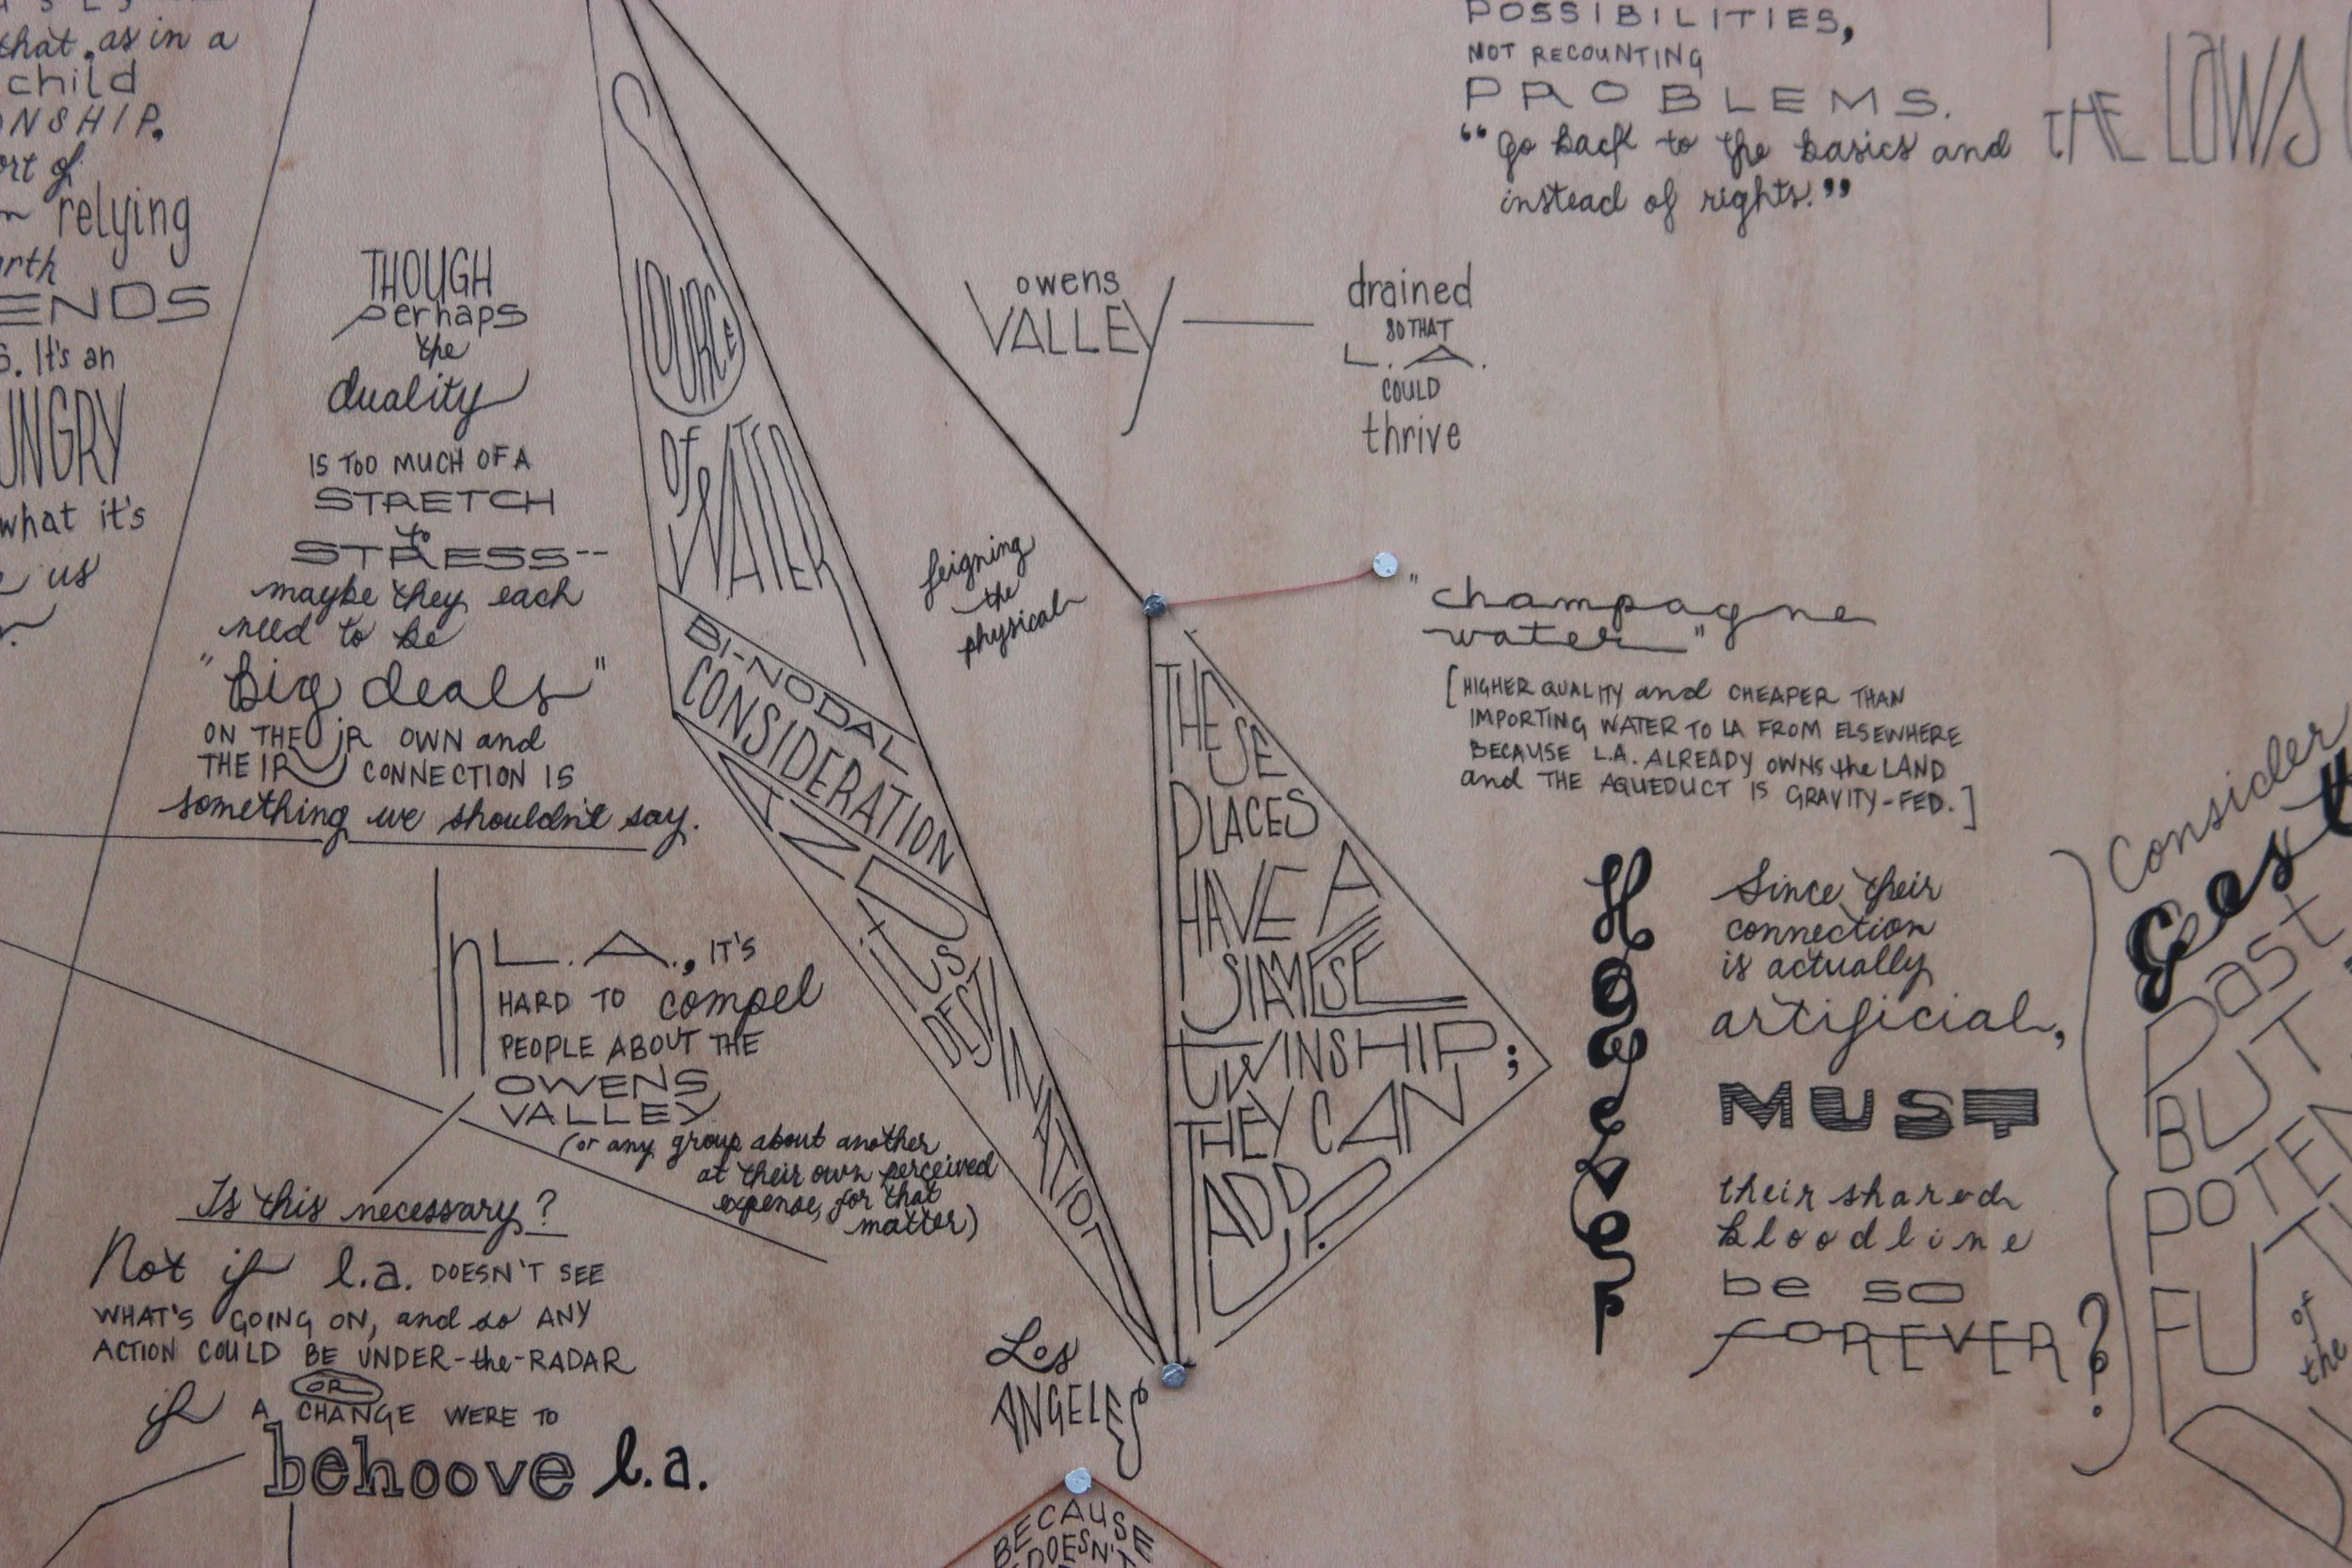 that, as in a
child
relying
ENDS
It's an
what it's
us
THOUGH
perhaps
the
duality
IS TOO MUCH OF A
STRETCH
to
STRESS--
maybe they each
need to be
"Big deals"
ON THEIR OWN and
THEIR CONNECTION IS
something we shouldn't say.
In L.A., IT'S
HARD TO compel
PEOPLE ABOUT THE
OWENS
VALLEY
(or any group about another
at their own perceived
expense, for that
matter)
Is this necessary?
Not if l.a. DOESN'T SEE
WHAT'S GOING ON, and so ANY
ACTION COULD BE UNDER-the-RADAR
OR
if A CHANGE WERE TO
behoove l.a.
SOURCE
OF
WATER
BI-NODAL
CONSIDERATION
AND
itS
DESTINATION
feigning
the
physical
owens
VALLEY
drained
SO THAT
L.A.
COULD
thrive
POSSIBILITIES,
NOT RECOUNTING
PROBLEMS.
"Go back to the basics and
instead of rights."
THE LOWS
"champagne
water"
[HIGHER QUALITY and CHEAPER THAN
IMPORTING WATER TO LA FROM ELSEWHERE
BECAUSE L.A. ALREADY OWNS the LAND
and THE AQUEDUCT IS GRAVITY-FED.]
THESE
PLACES
HAVE A
SIAMESE
TWINSHIP;
THEY CAN
ADD
UP.
However
Since their
connection
is actually
artificial,
MUST
their shared
bloodline
be so
FOREVER?
Los
ANGELES
BECAUSE
DOESN'T
Consider
past
BUT
of
the